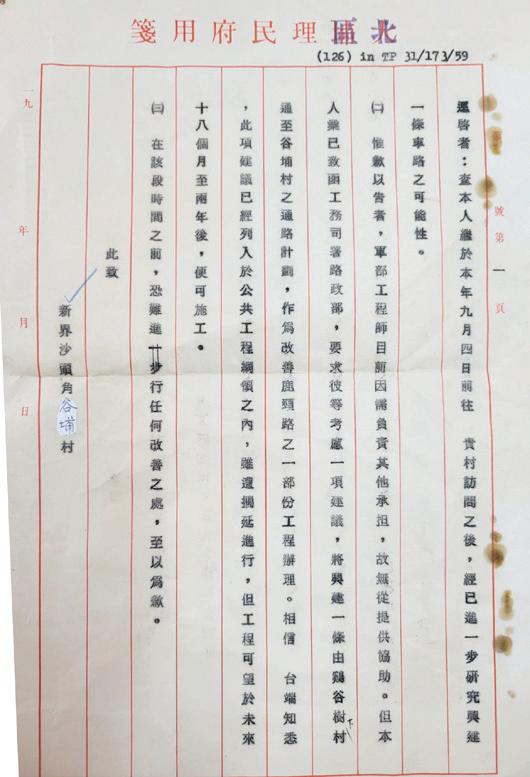 北區理民府用箋
(126) in TP 31/173/59
第 號
第 一 頁
逕啓者：查本人繼於本年九月四日前往 貴村訪問之後，經已進一步研究興建
一條車路之可能性。
㈡ 惟歉以告者，軍部工程師目前因需負責其他承担，故無從提供協助。但本
人業已致函工務司署路政部，要求彼等考慮一項建議，將興建一條由鷄谷樹下村
通至谷埔村之通路計劃，作爲改善鹿頸路之一部份工程辦理。相信 台端知悉
，此項建議已經列入於公共工程綱領之內，雖遭擱延進行，但工程可望於未來
十八個月至兩年後，便可施工。
㈢ 在該段時間之前，恐難進一步行任何改善之處，至以爲歉。
此致
新界沙頭角谷埔村
一九 年 月 日